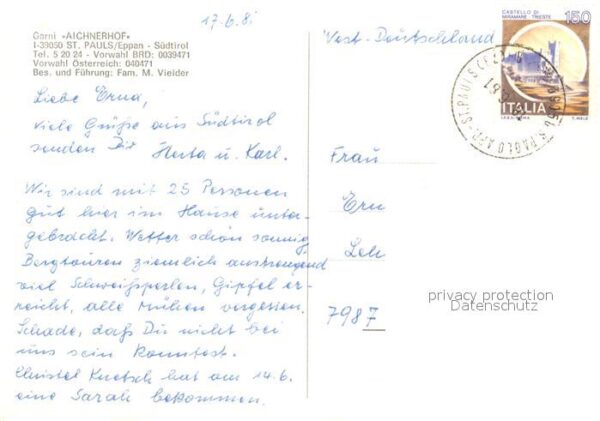 17.6.81
Garni «AICHNERHOF»
I-39050 ST. PAULS/Eppan - Südtirol
Tel. 5 20 24 - Vorwahl BRD: 0039471
Vorwahl Österreich: 040471
Bes. und Führung: Fam. M. Vieider
Liebe Erna,
viele Grüße aus Südtirol
senden Dir Herta u. Karl.
Wir sind mit 25 Personen
gut hier im Hause unter-
gebracht. Wetter schön sonnig,
Bergtouren ziemlich anstrengend
viel Schweißperlen, Gipfel er-
reicht, alle Mühen vergessen.
Schade, daß Du nicht bei
uns sein konntest.
Christel Kuetsch hat am 14.6.
eine Sarah bekommen.
West-Deutschland
CASTELLO DI
MIRAMARE TRIESTE
150
ITALIA
Frau
Ern
Leh
7987
privacy protection
Datenschutz